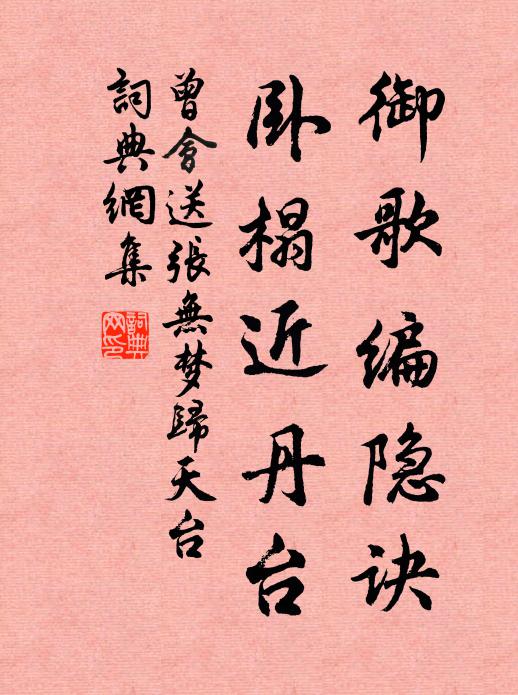 御歌编隐诀
卧榻近丹台
曾會送張無梦歸天台
詞典網集
詞典网印